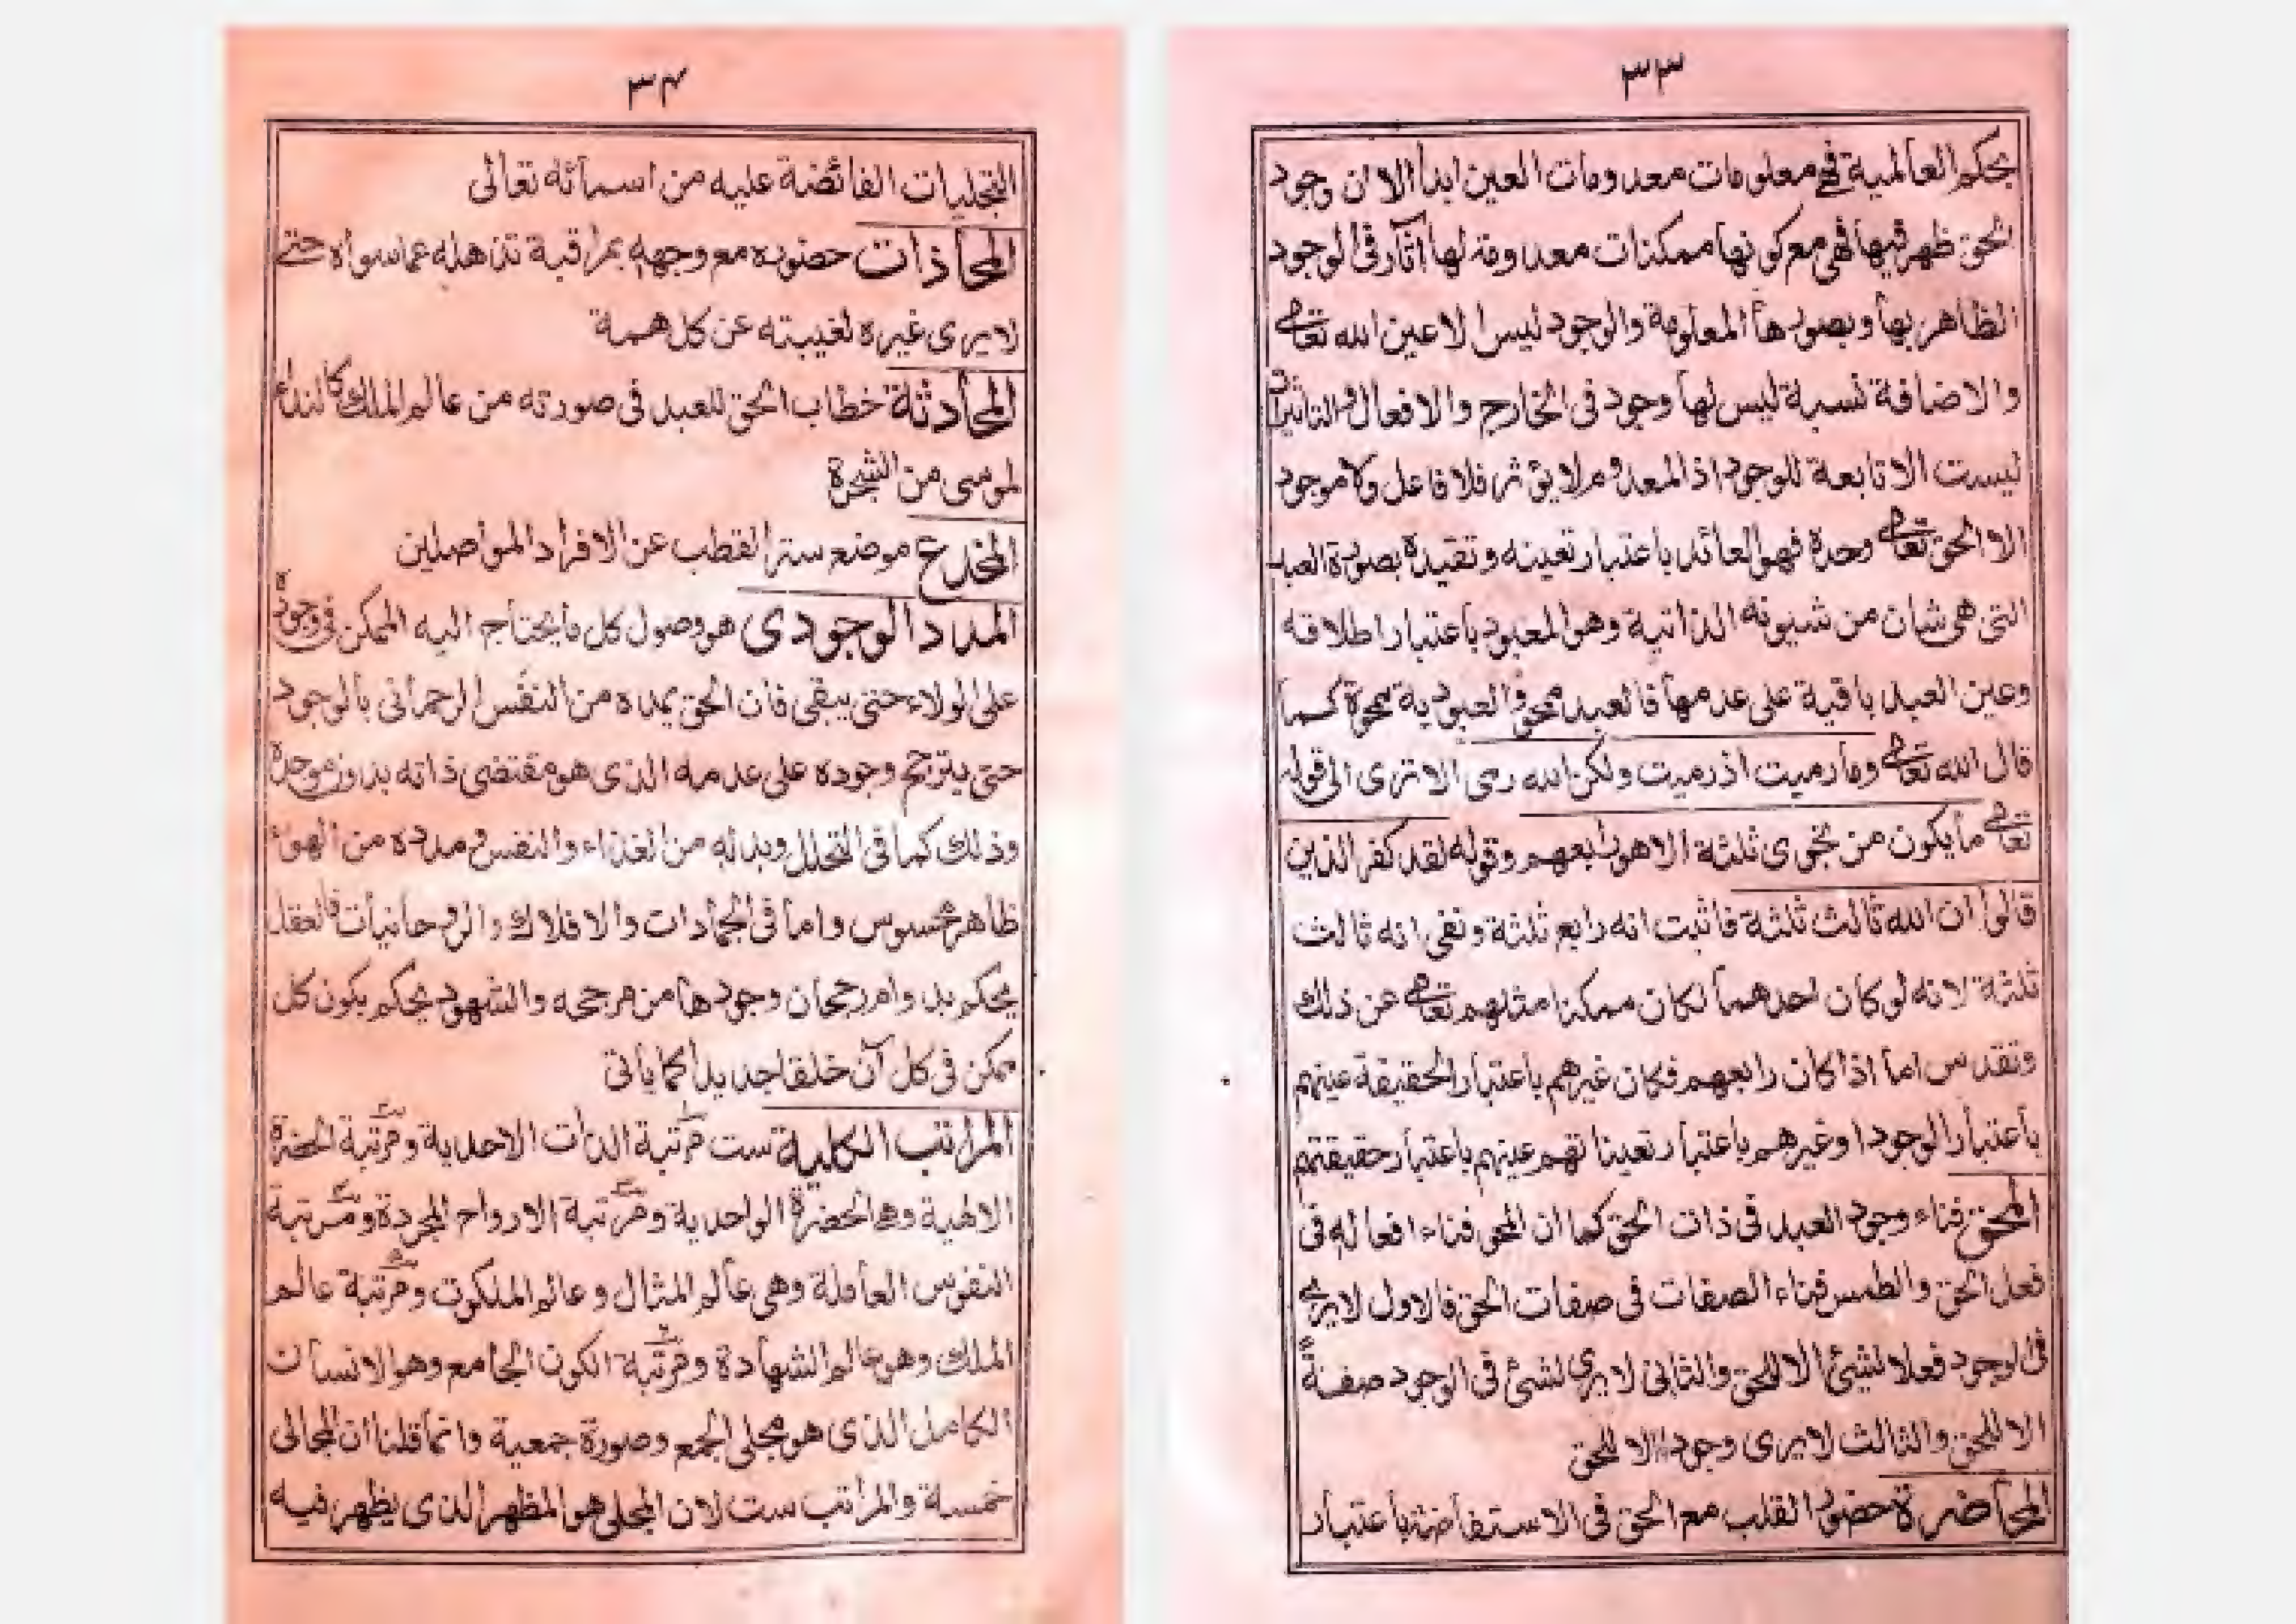 ٣٣
بحكم العالمية فهي معلومات معدومات العين ابدا الا ان وجود
الحق ظهر فيها فهي مع كونها ممكنات معدومة لها آثار فى الوجود
الظاهر بها وبصورها المعلومة والوجود ليس الا عين الله تعالى
والاضافة نسبة ليس لها وجود فى الخارج والافعال والتاثيرات
ليست الا تابعة للوجود اذ المعدوم لا يؤثر فلا فاعل ولا موجود
الا الحق تعالى وحده فهو العائد باعتبار تعينه وتقيده بصورة العبد
التى هى شان من شيونه الذاتية وهو المعبود باعتبار اطلاقه
وعين العبد باقية على عدمها فالعبد ممحو والعبودية ممحوة كما
قال الله تعالى وما رميت اذ رميت ولكن الله رمى الا ترى الى قوله
تعالى ما يكون من نجوى ثلثة الا هو رابعهم وقوله لقد كفر الذين
قالوا ان الله ثالث ثلثة فاثبت انه رابع ثلثة ونفى انه ثالث
ثلثة لانه لو كان احدهما لكان ممكنا مثلهم تعالى عن ذلك
وتقدس اما اذا كان رابعهم فكان غيرهم باعتبار الحقيقة عينهم
باعتبار الوجود او غيرهم باعتبار تعيناتهم عينهم باعتبار حقيقتهم
المحق فناء وجود العبد فى ذات الحق كما ان المحو فناء افعاله فى
فعل الحق والطمس فناء الصفات فى صفات الحق فالاول لا يرى
فى الوجود فعلا لشئ الا للحق والثانى لا يرى لشئ فى الوجود صفة
الا للحق والثالث لا يرى وجودا الا للحق
المحاضرة حضور القلب مع الحق فى الاستفاضة باعتبار
٣٤
التجليات الفائضة عليه من اسمآئه تعالى
المحاذات حضوره مع وجهه بمراقبة تذهله عما سواه حتى
لا يرى غيره لغيبته عن كل همة
المحادثة خطاب الحق للعبد فى صورته من عالم الملك كالنداء
لموسى من الشجرة
المخدع موضع ستر القطب عن الافراد المواصلين
المدد الوجودى هو وصول كل ما يحتاج اليه الممكن فى وجوده
على الولاء حتى يبقى فان الحق يمده من النفس الرحمانى بالوجود
حتى يترجح وجوده على عدمه الذى هو مقتضى ذاته بدون موجده
وذلك كما فى التحلل وبدله من الغذاء والنفس ومدده من الهواء
ظاهر محسوس واما فى الجمادات والافلاك والروحانيات فالعقل
يحكم بدوام رجحان وجودها من مرجحه والشهود يحكم بكون كل
ممكن فى كل آن خلقا جديدا كما ياتى
المراتب الكلية ست مرتبة الذات الاحدية ومرتبة الحضرة
الالهية وهى الحضرة الواحدية ومرتبة الارواح المجردة ومرتبة
النفوس العاملة وهى عالم المثال وعالم الملكوت ومرتبة عالم
الملك وهو عالم الشهادة ومرتبة الكون الجامع وهو الانسان
الكامل الذى هو مجلى الجمع وصورة جمعية وانما قلنا ان المجالى
خمسة والمراتب ست لان المجلى هو المظهر الذى يظهر فيه